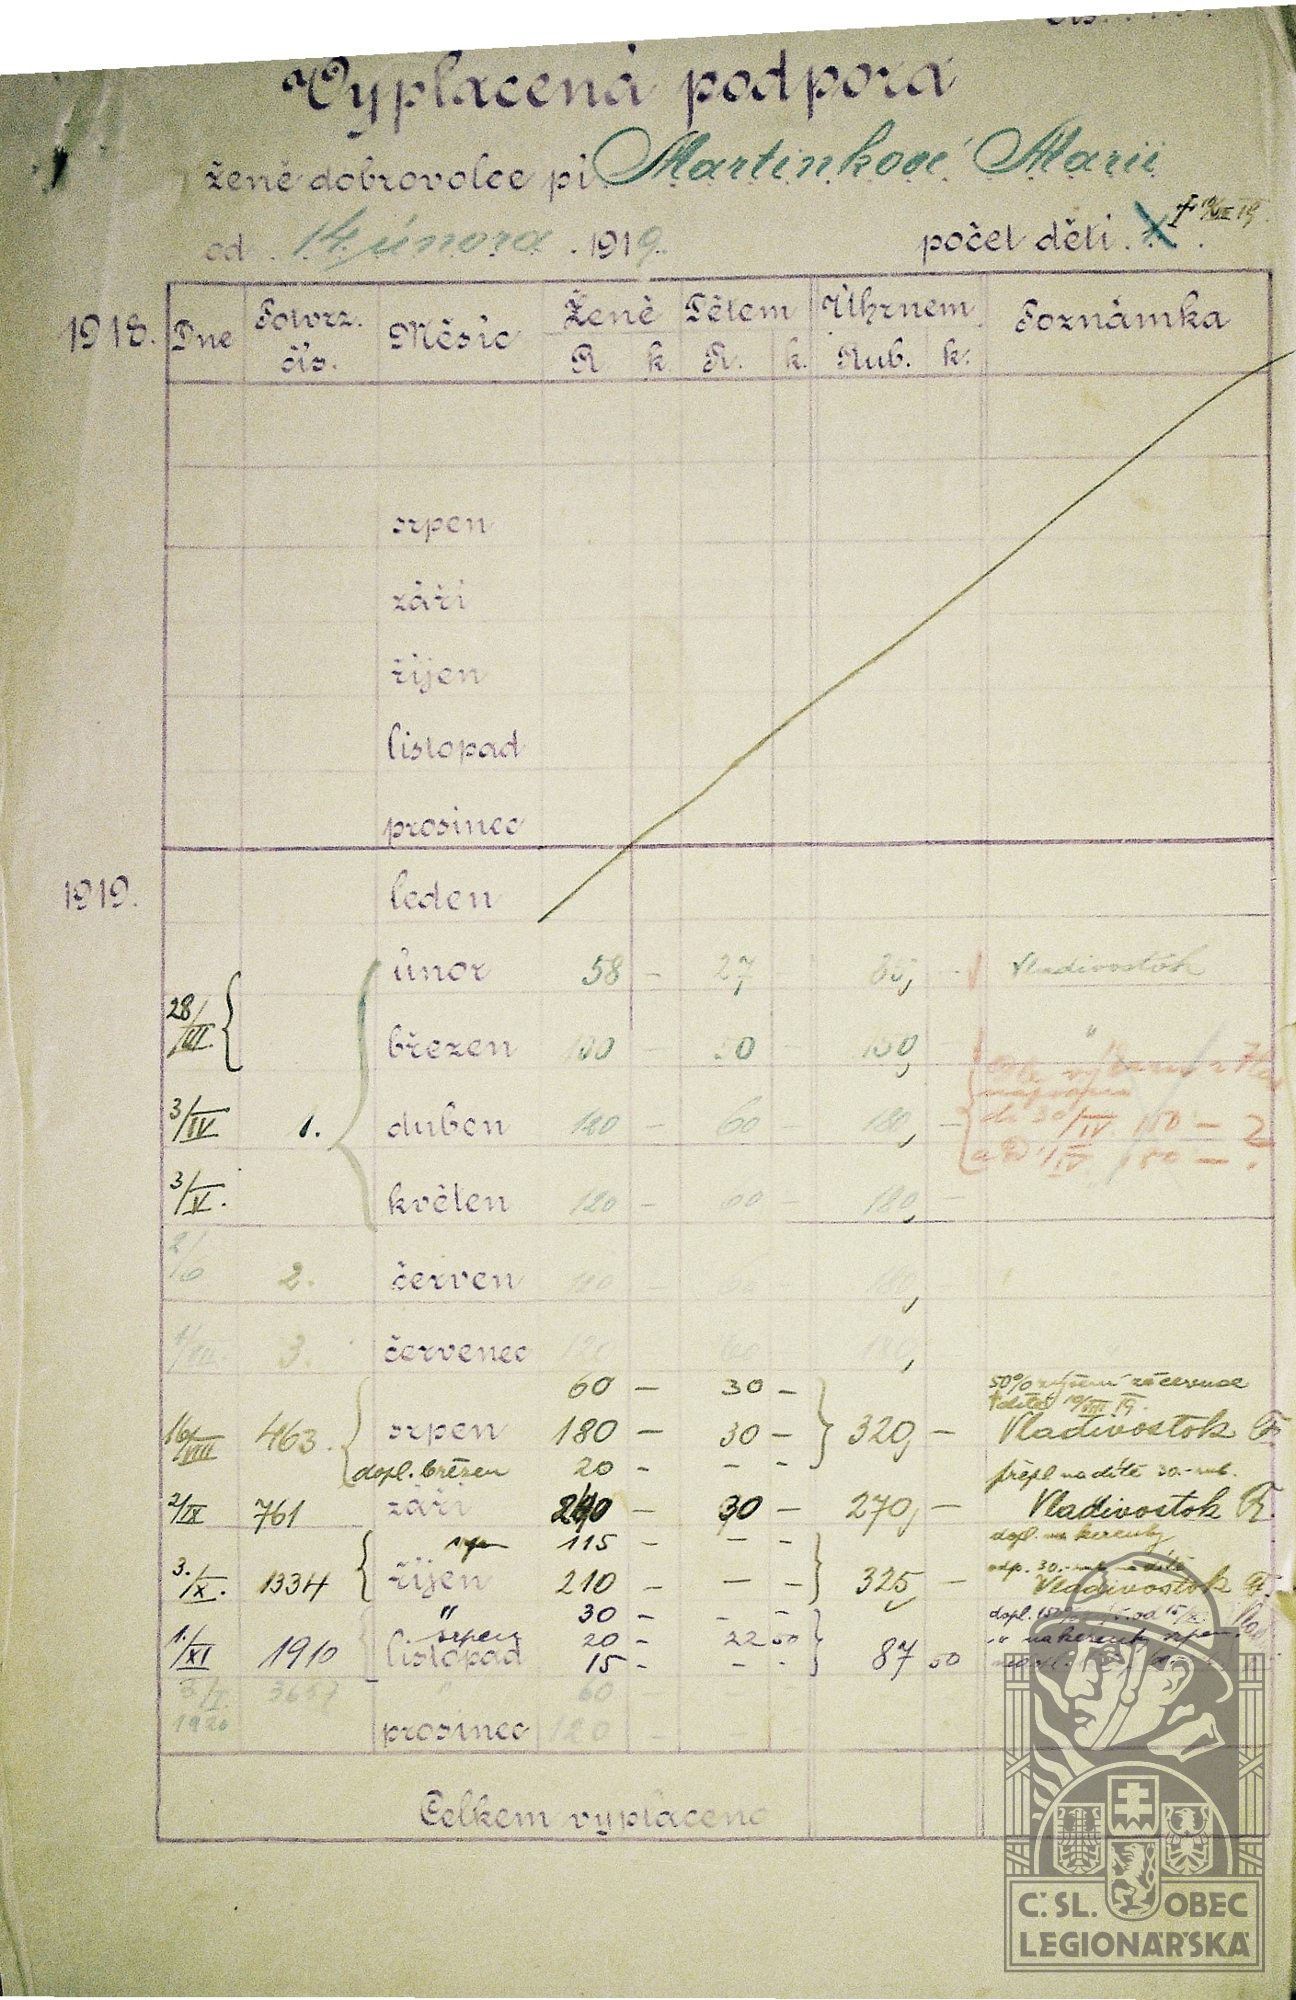 Vyplacená podpora
ženě dobrovolce pí Martinkové Marii
od 14 února 1919. počet dětí
1918. Dne Potvrz. čís. Měsíc Ženě Dětem Úhrnem Poznámka
R k. R. k. Rub. k.
srpen
září
říjen
listopad
prosinec
1919. leden
únor 58 - 27 85, - Vladivostok
28/III. březen 100 - 50 - 150, "
3/IV 1. duben 120 - 60 - 180, -
do 30/IV 150 -
3/V. květen 120 - 60 - 180, -
2/6 2. červen 180,
1/VII. 3. červenec 120 60 180,
60 - 30 - 50% zvýšení za červenec
16/VIII 463. srpen 180 - 30 - 320, - Vladivostok
dopl. březen 20 - - - přepl na dítě 30.- rub.
2/IX 761 září 240 - 30 - 270, - Vladivostok
srpen 115 - - - dopl. na kerenky
3./X. 1334 říjen 210 - - - 325 - Vladivostok
" 30 - - -
srpen 20 - 22 50
1./XI 1910 listopad 15 - - - 87 50
3/I. 1920 3657 " 60
prosinec 120 -
Celkem vyplaceno
Č. SL. OBEC
LEGIONÁŘSKÁ